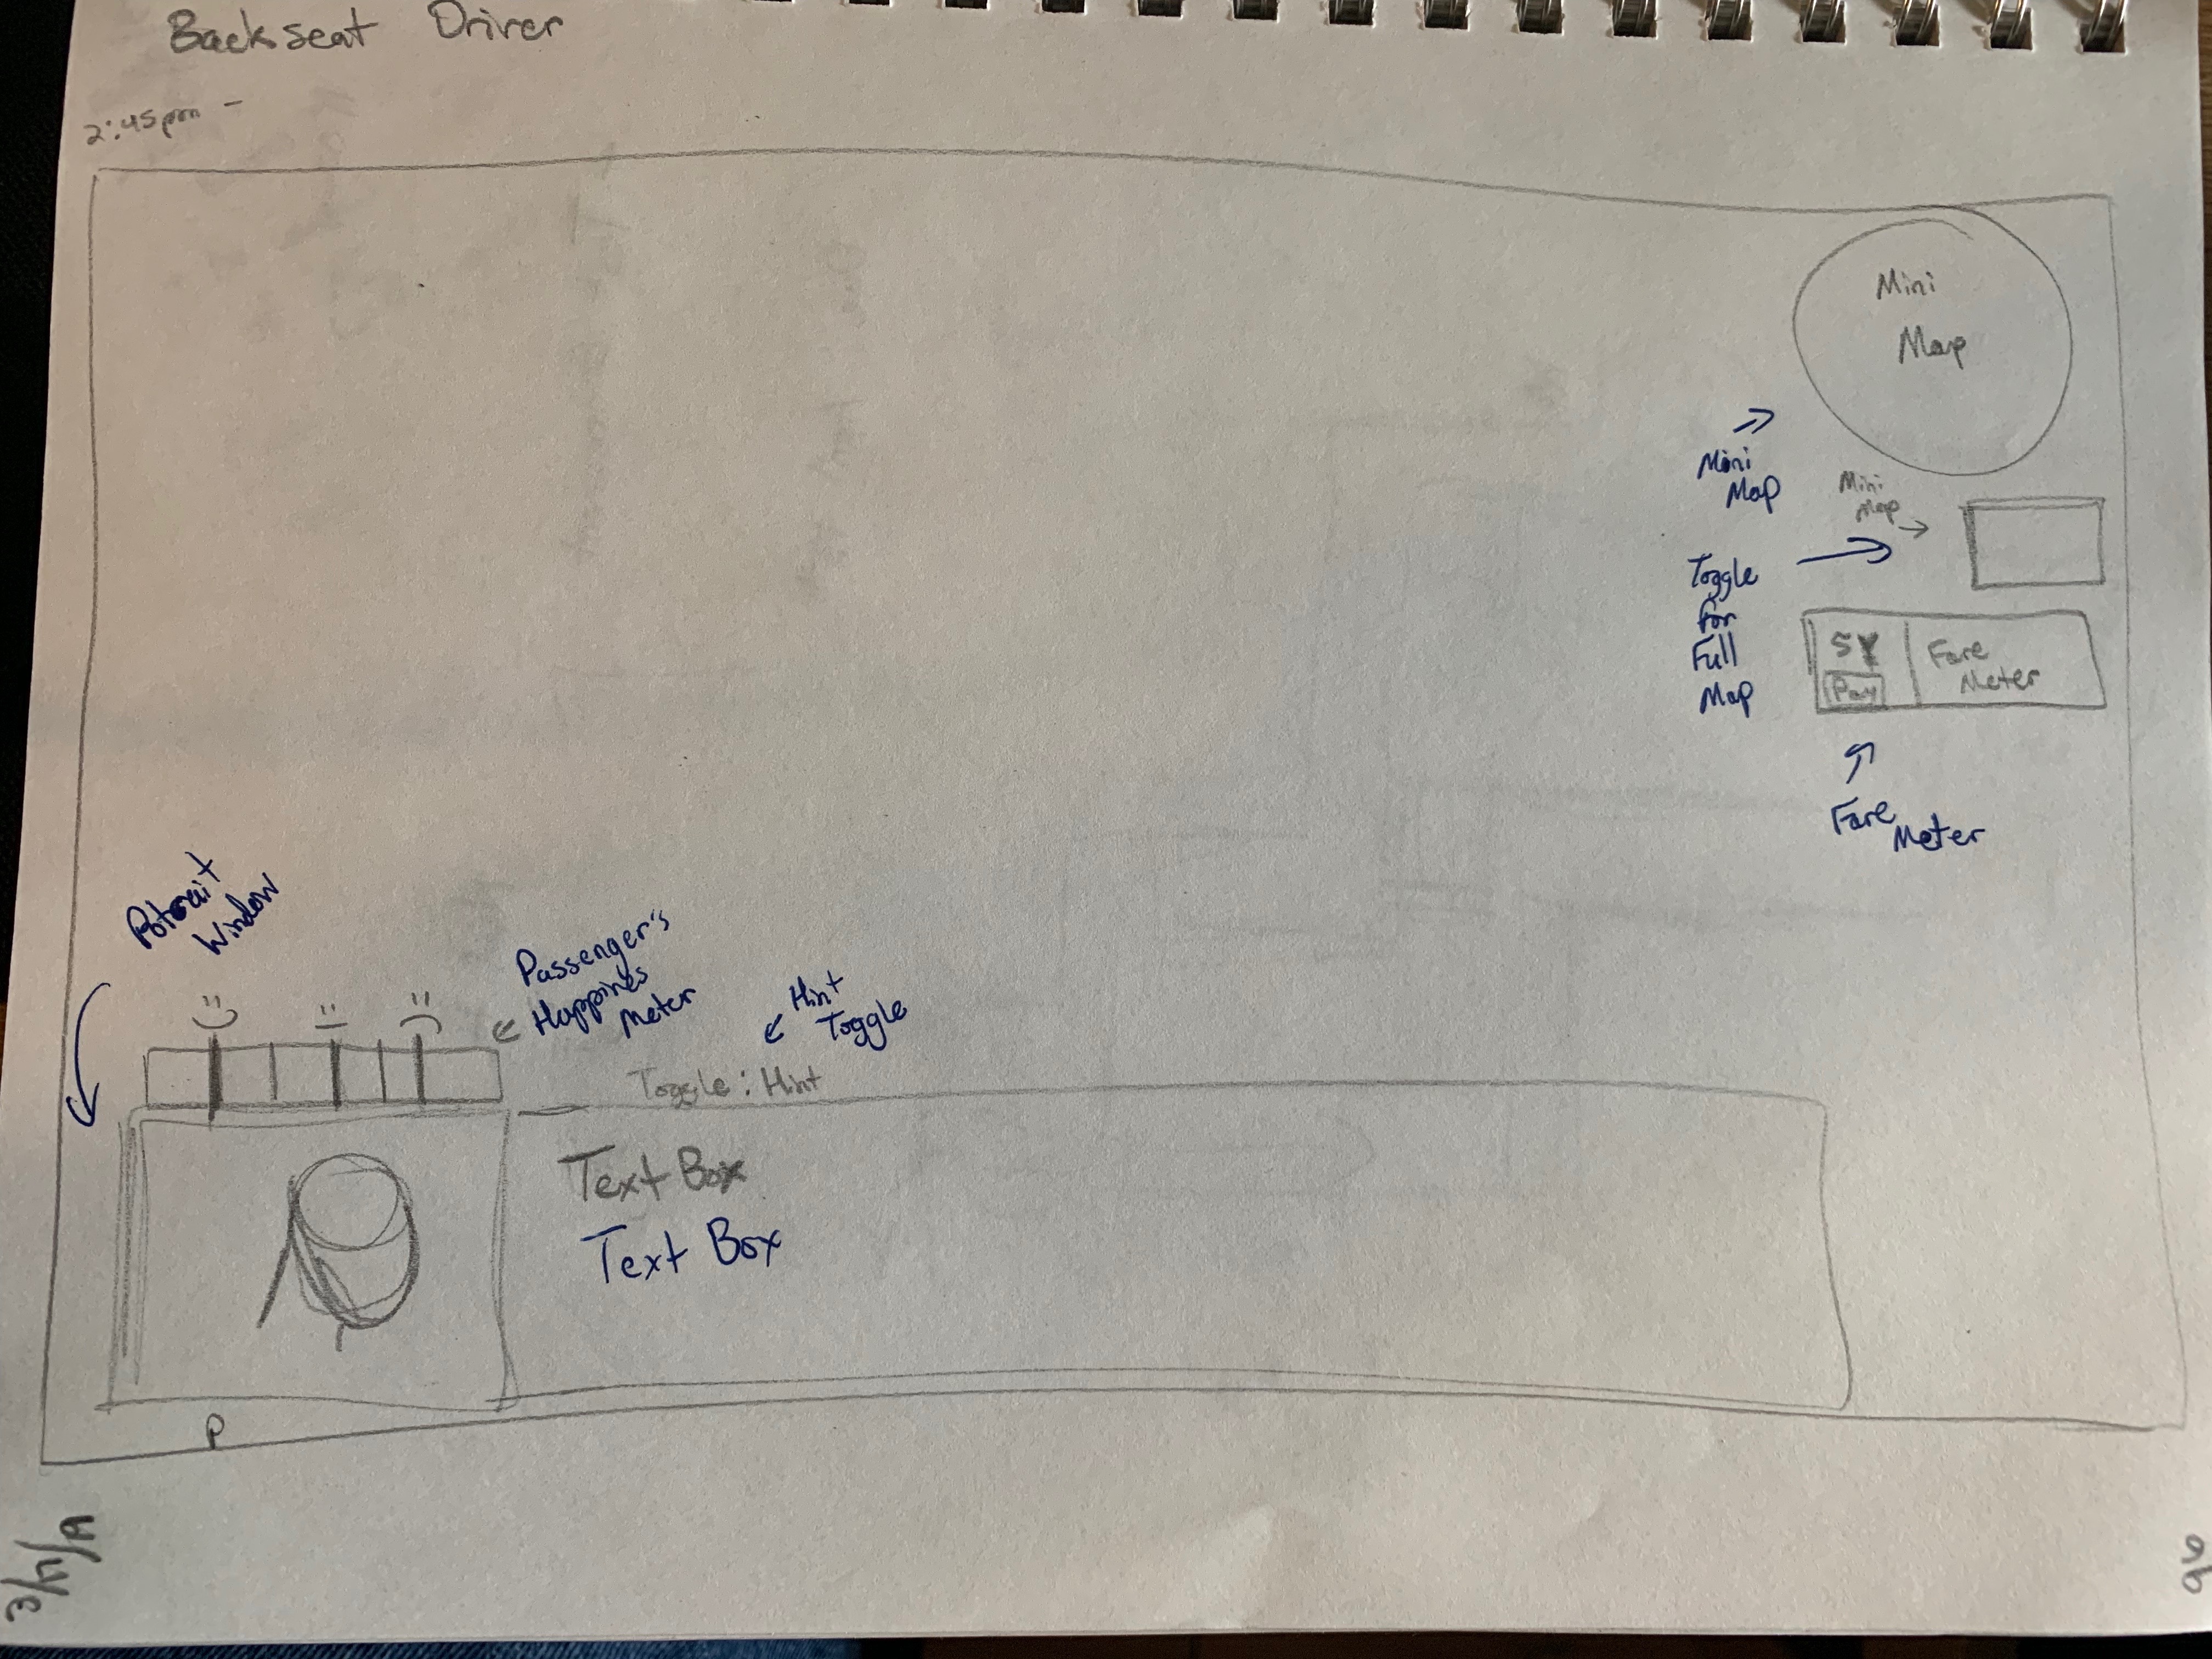 Backseat Driver
2:45pm -
Mini
Map
Mini
Map
Mini
Map
Toggle
for
Full
Map
Fare
Meter
Pay
Fare
Meter
Potrait
Window
Passenger's
Happines
Meter
Hint
Toggle
Toggle: Hint
Text Box
Text Box
P
3/17/19
96